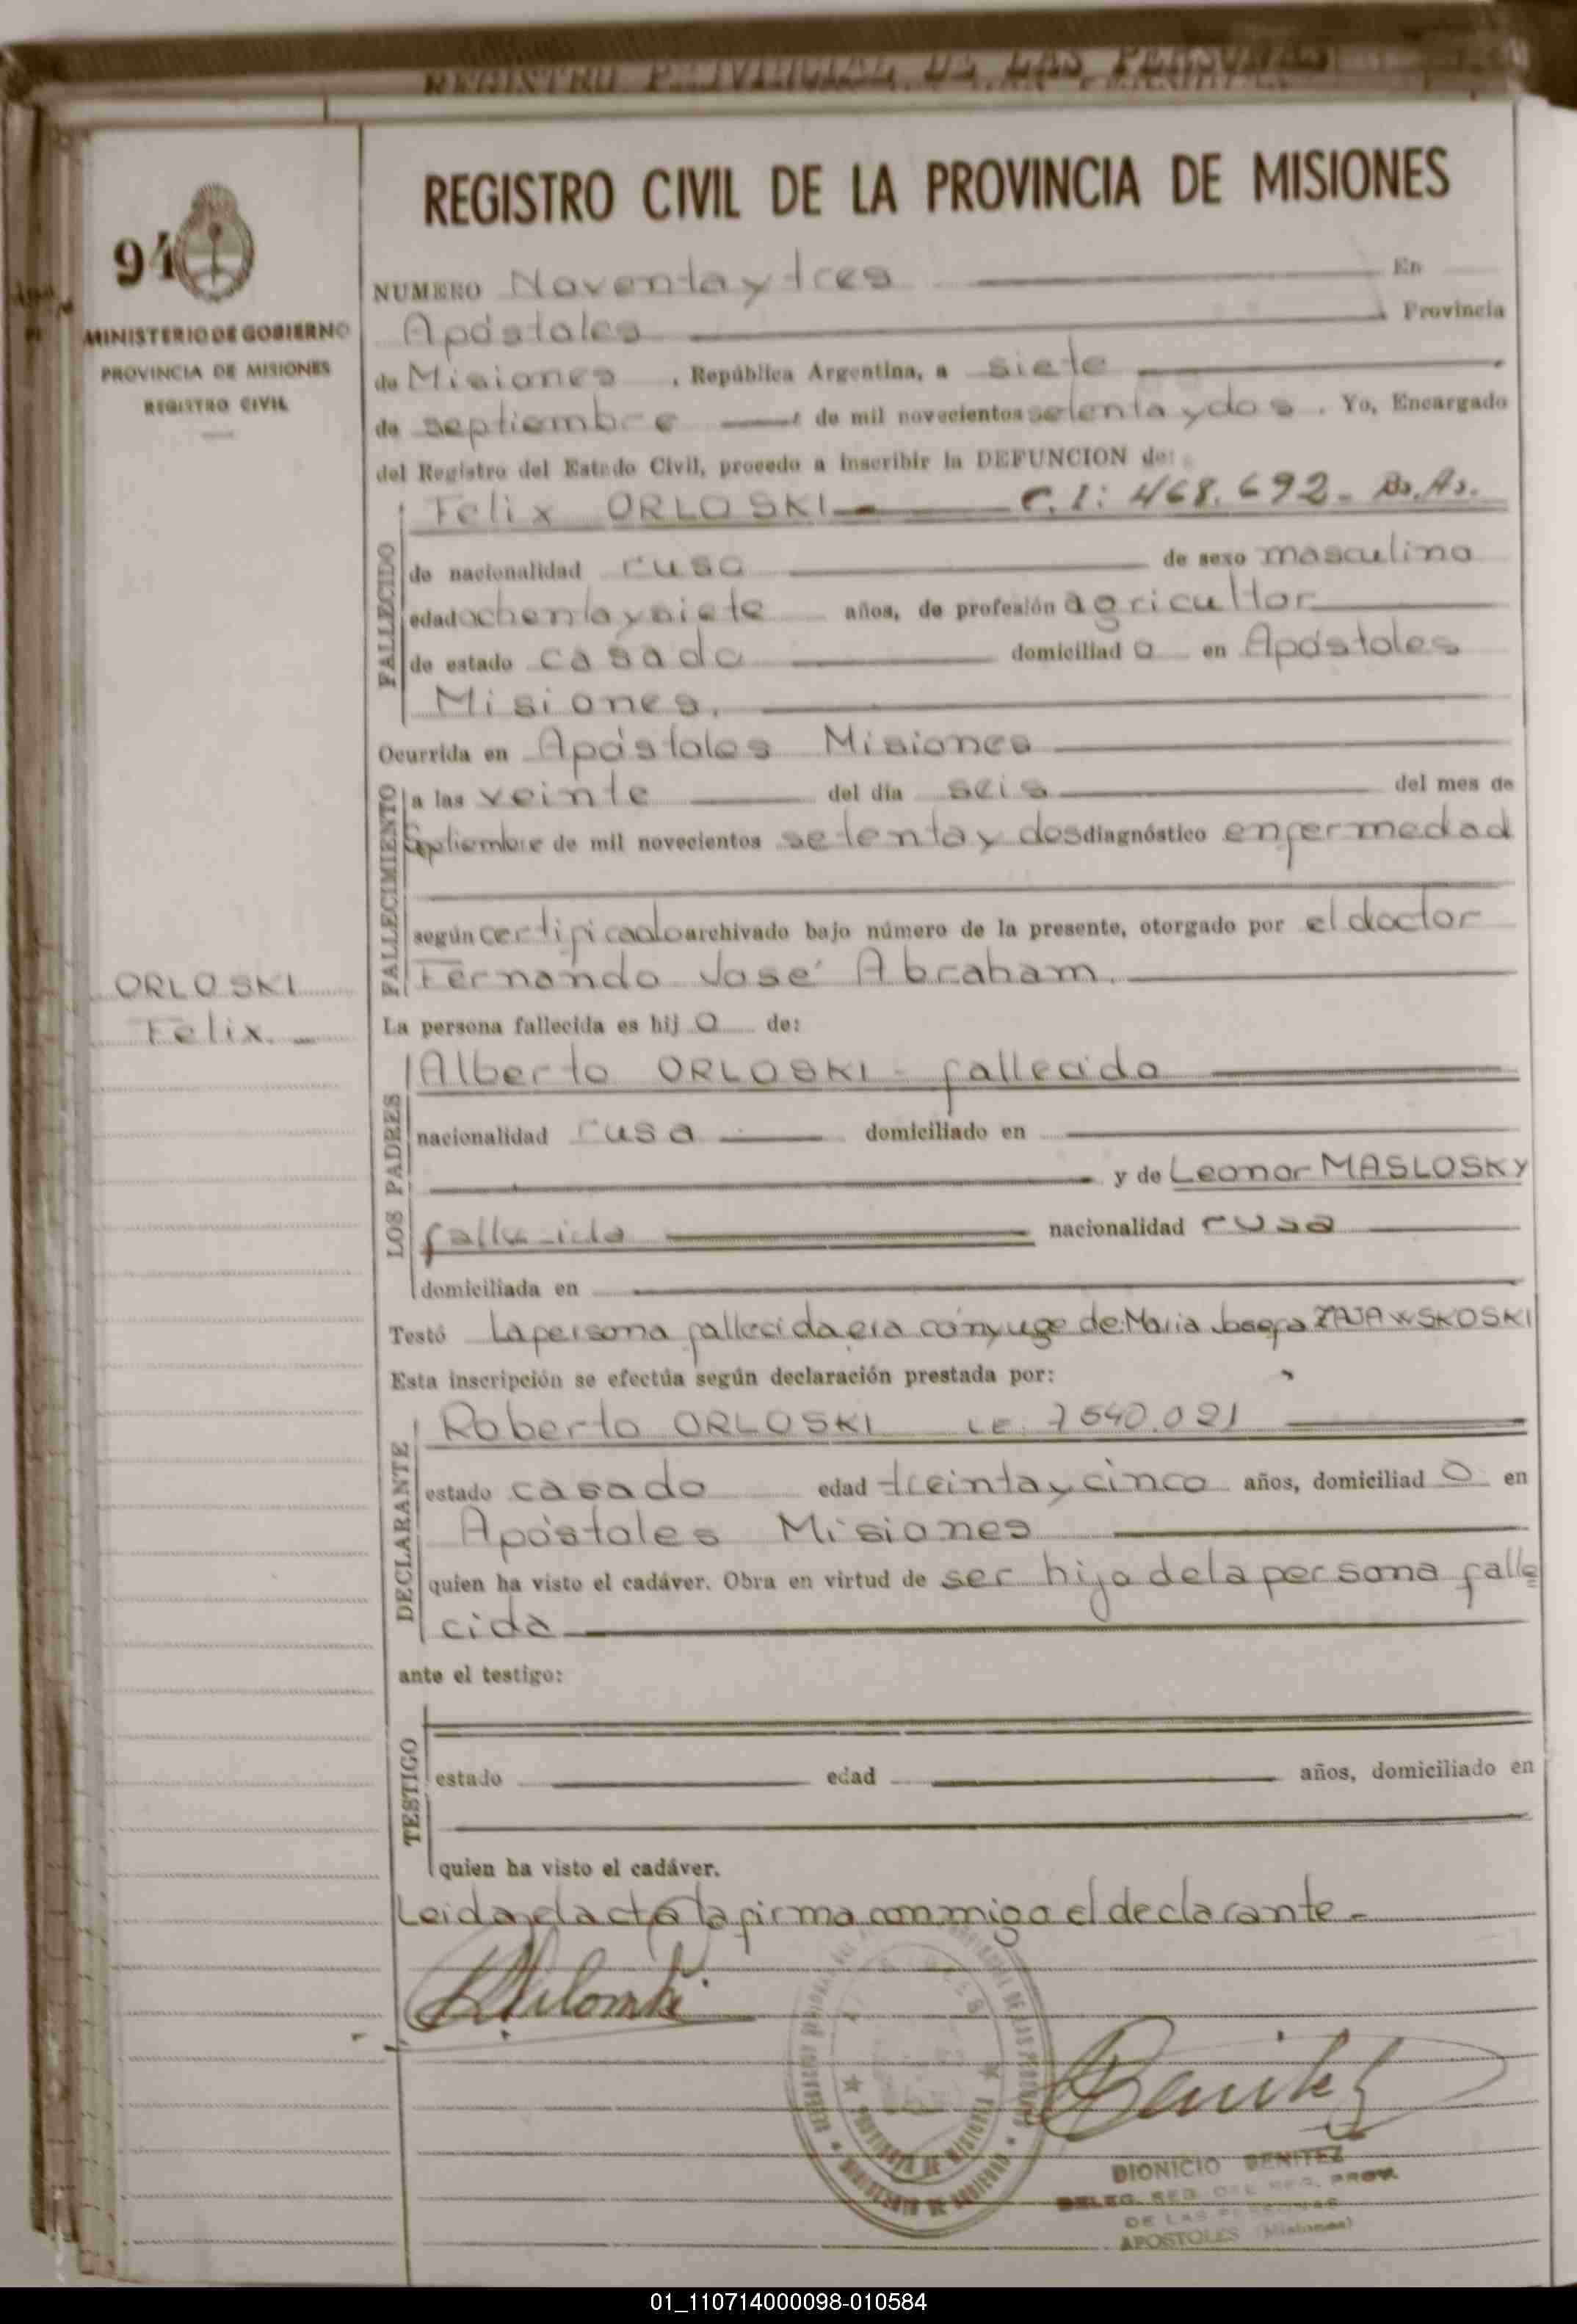 REGISTRO PROVINCIAL DE LAS PERSONAS
REGISTRO CIVIL DE LA PROVINCIA DE MISIONES
94
MINISTERIO DE GOBIERNO
PROVINCIA DE MISIONES
REGISTRO CIVIL
NUMERO Noventa y tres En
Apóstoles Provincia
de Misiones, República Argentina, a siete
de septiembre de mil novecientos setenta y dos. Yo, Encargado
del Registro del Estado Civil, procedo a inscribir la DEFUNCION de:
Felix ORLOSKI C.I: 468.692- Bs.As.
FALLECIDO
de nacionalidad rusa de sexo masculino
edad ochenta y siete años, de profesión agricultor
de estado casado domiciliado en Apóstoles
Misiones.
Ocurrida en Apóstoles Misiones
FALLECIMIENTO
a las veinte del día seis del mes de
Septiembre de mil novecientos setenta y dos diagnóstico enfermedad
según certificado archivado bajo número de la presente, otorgado por el doctor
Fernando José Abraham.
ORLOSKI
Felix.
La persona fallecida es hijo de:
LOS PADRES
Alberto ORLOSKI - fallecido
nacionalidad rusa domiciliado en
y de Leonor MASLOSKY
fallecida nacionalidad rusa
domiciliada en
Testó La persona fallecida era cónyuge de: Maria Josefa ZAJAWSKOSKI
Esta inscripción se efectúa según declaración prestada por:
DECLARANTE
Roberto ORLOSKI L.E. 7540.021
estado casado edad treinta y cinco años, domiciliado en
Apóstoles Misiones
quien ha visto el cadáver. Obra en virtud de ser hijo de la persona falle
cida
ante el testigo:
TESTIGO
estado edad años, domiciliado en
quien ha visto el cadáver.
Leida el acta la firma conmigo el declarante -
Benitez
PROVINCIA DE MISIONES
MINISTERIO DE GOBIERNO
DIONICIO BENITEZ
DELEG. REG. DEL REG. PROV.
DE LAS PERSONAS
APOSTOLES (Misiones)
01_110714000098-010584